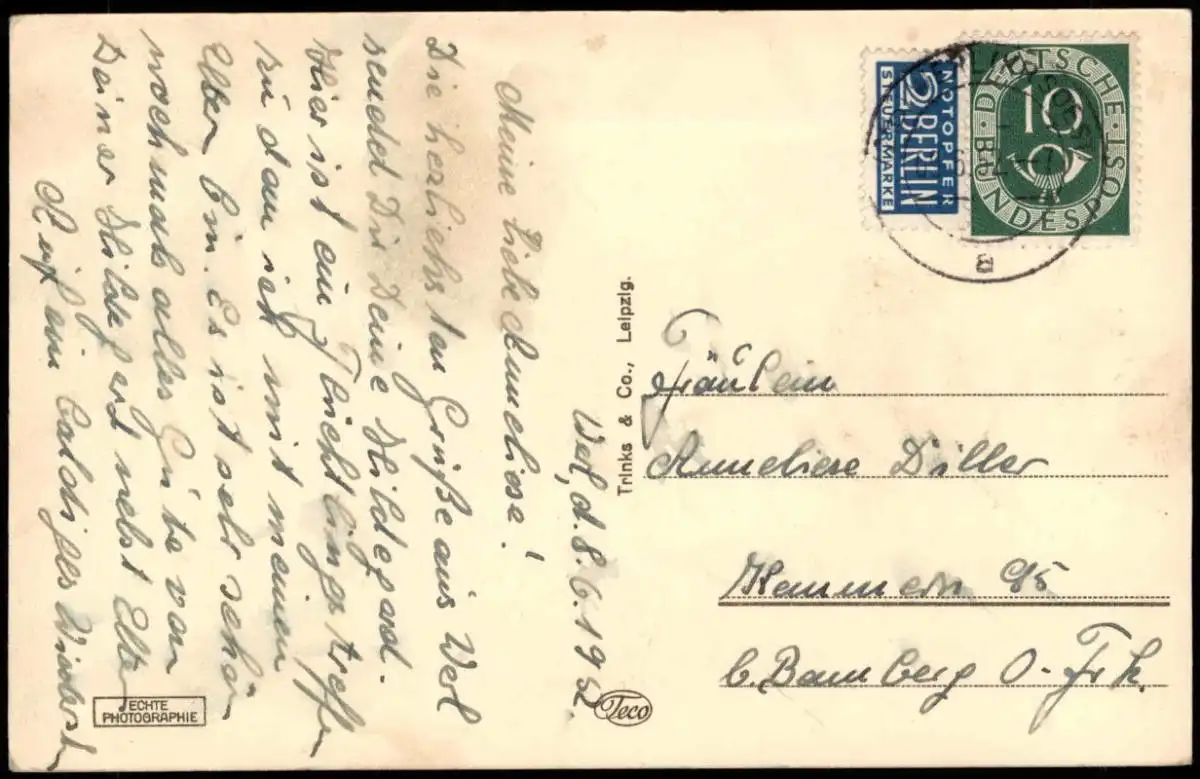 Wel, d. 8.6.1952.
Meine liebe Anneliese!
Die herzlichsten Grüße aus Werl
sendet Dir Deine Hildegard.
Hier ist ein Flüchtlingstreffen
zu dem ich mit meinen
Eltern bin. Es ist sehr schön
nochmals alles Gute von
Deiner Hildegard nebst Eltern
Auf ein baldiges Wiederseh
ECHTE
PHOTOGRAPHIE
Trinks & Co., Leipzig.
Teco
NOTOPFER
2 BERLIN
STEUERMARKE
DEUTSCHE BUNDESPOST
10
a
Fräulein
Anneliese Diller
Kemmern 95
b. Bamberg O-Frk.